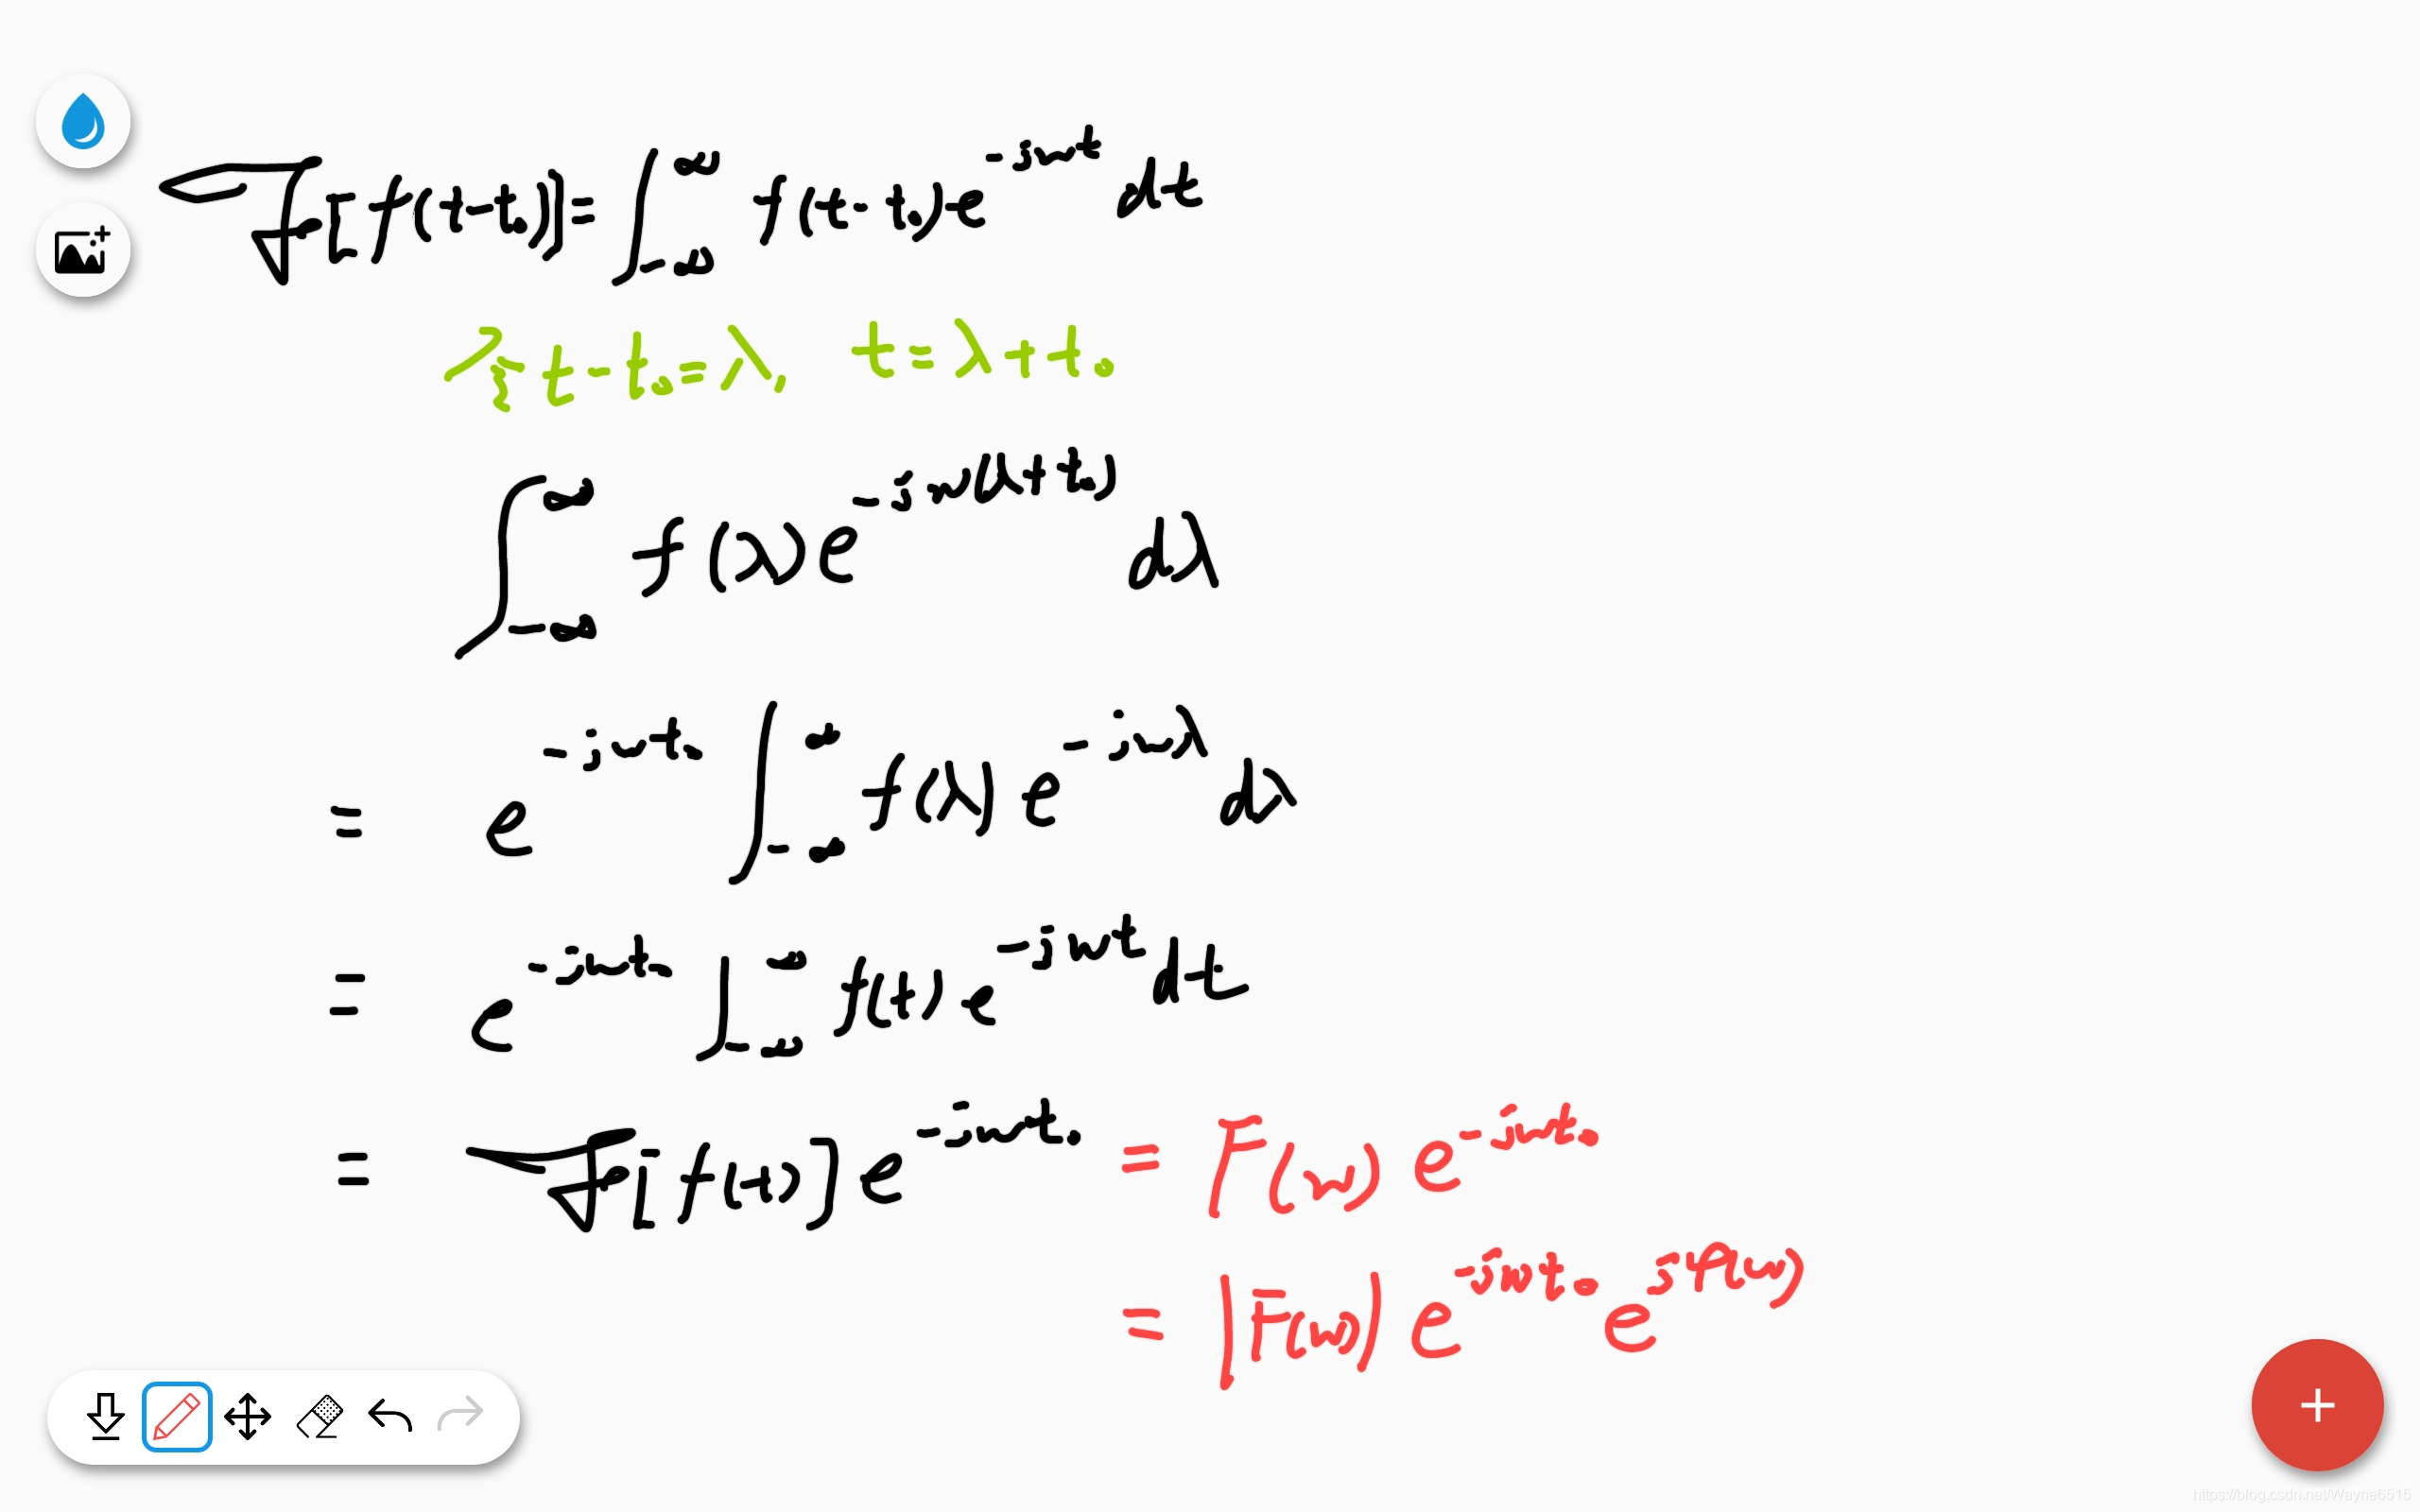 ℱ[f(t-t₀)]=∫_{-∞}^{∞} f(t-t₀)e^{-jωt} dt
令t-t₀=λ, t=λ+t₀
∫_{-∞}^{∞} f(λ)e^{-jω(λ+t₀)} dλ
= e^{-jωt₀} ∫_{-∞}^{∞} f(λ) e^{-jωλ} dλ
= e^{-jωt₀} ∫_{-∞}^{∞} f(t) e^{-jωt} dt
= ℱ[f(t)] e^{-jωt₀} = F(ω) e^{-jωt₀}
= |F(ω)| e^{-jωt₀} e^{jφ(ω)}
https://blog.csdn.net/Wayne6515